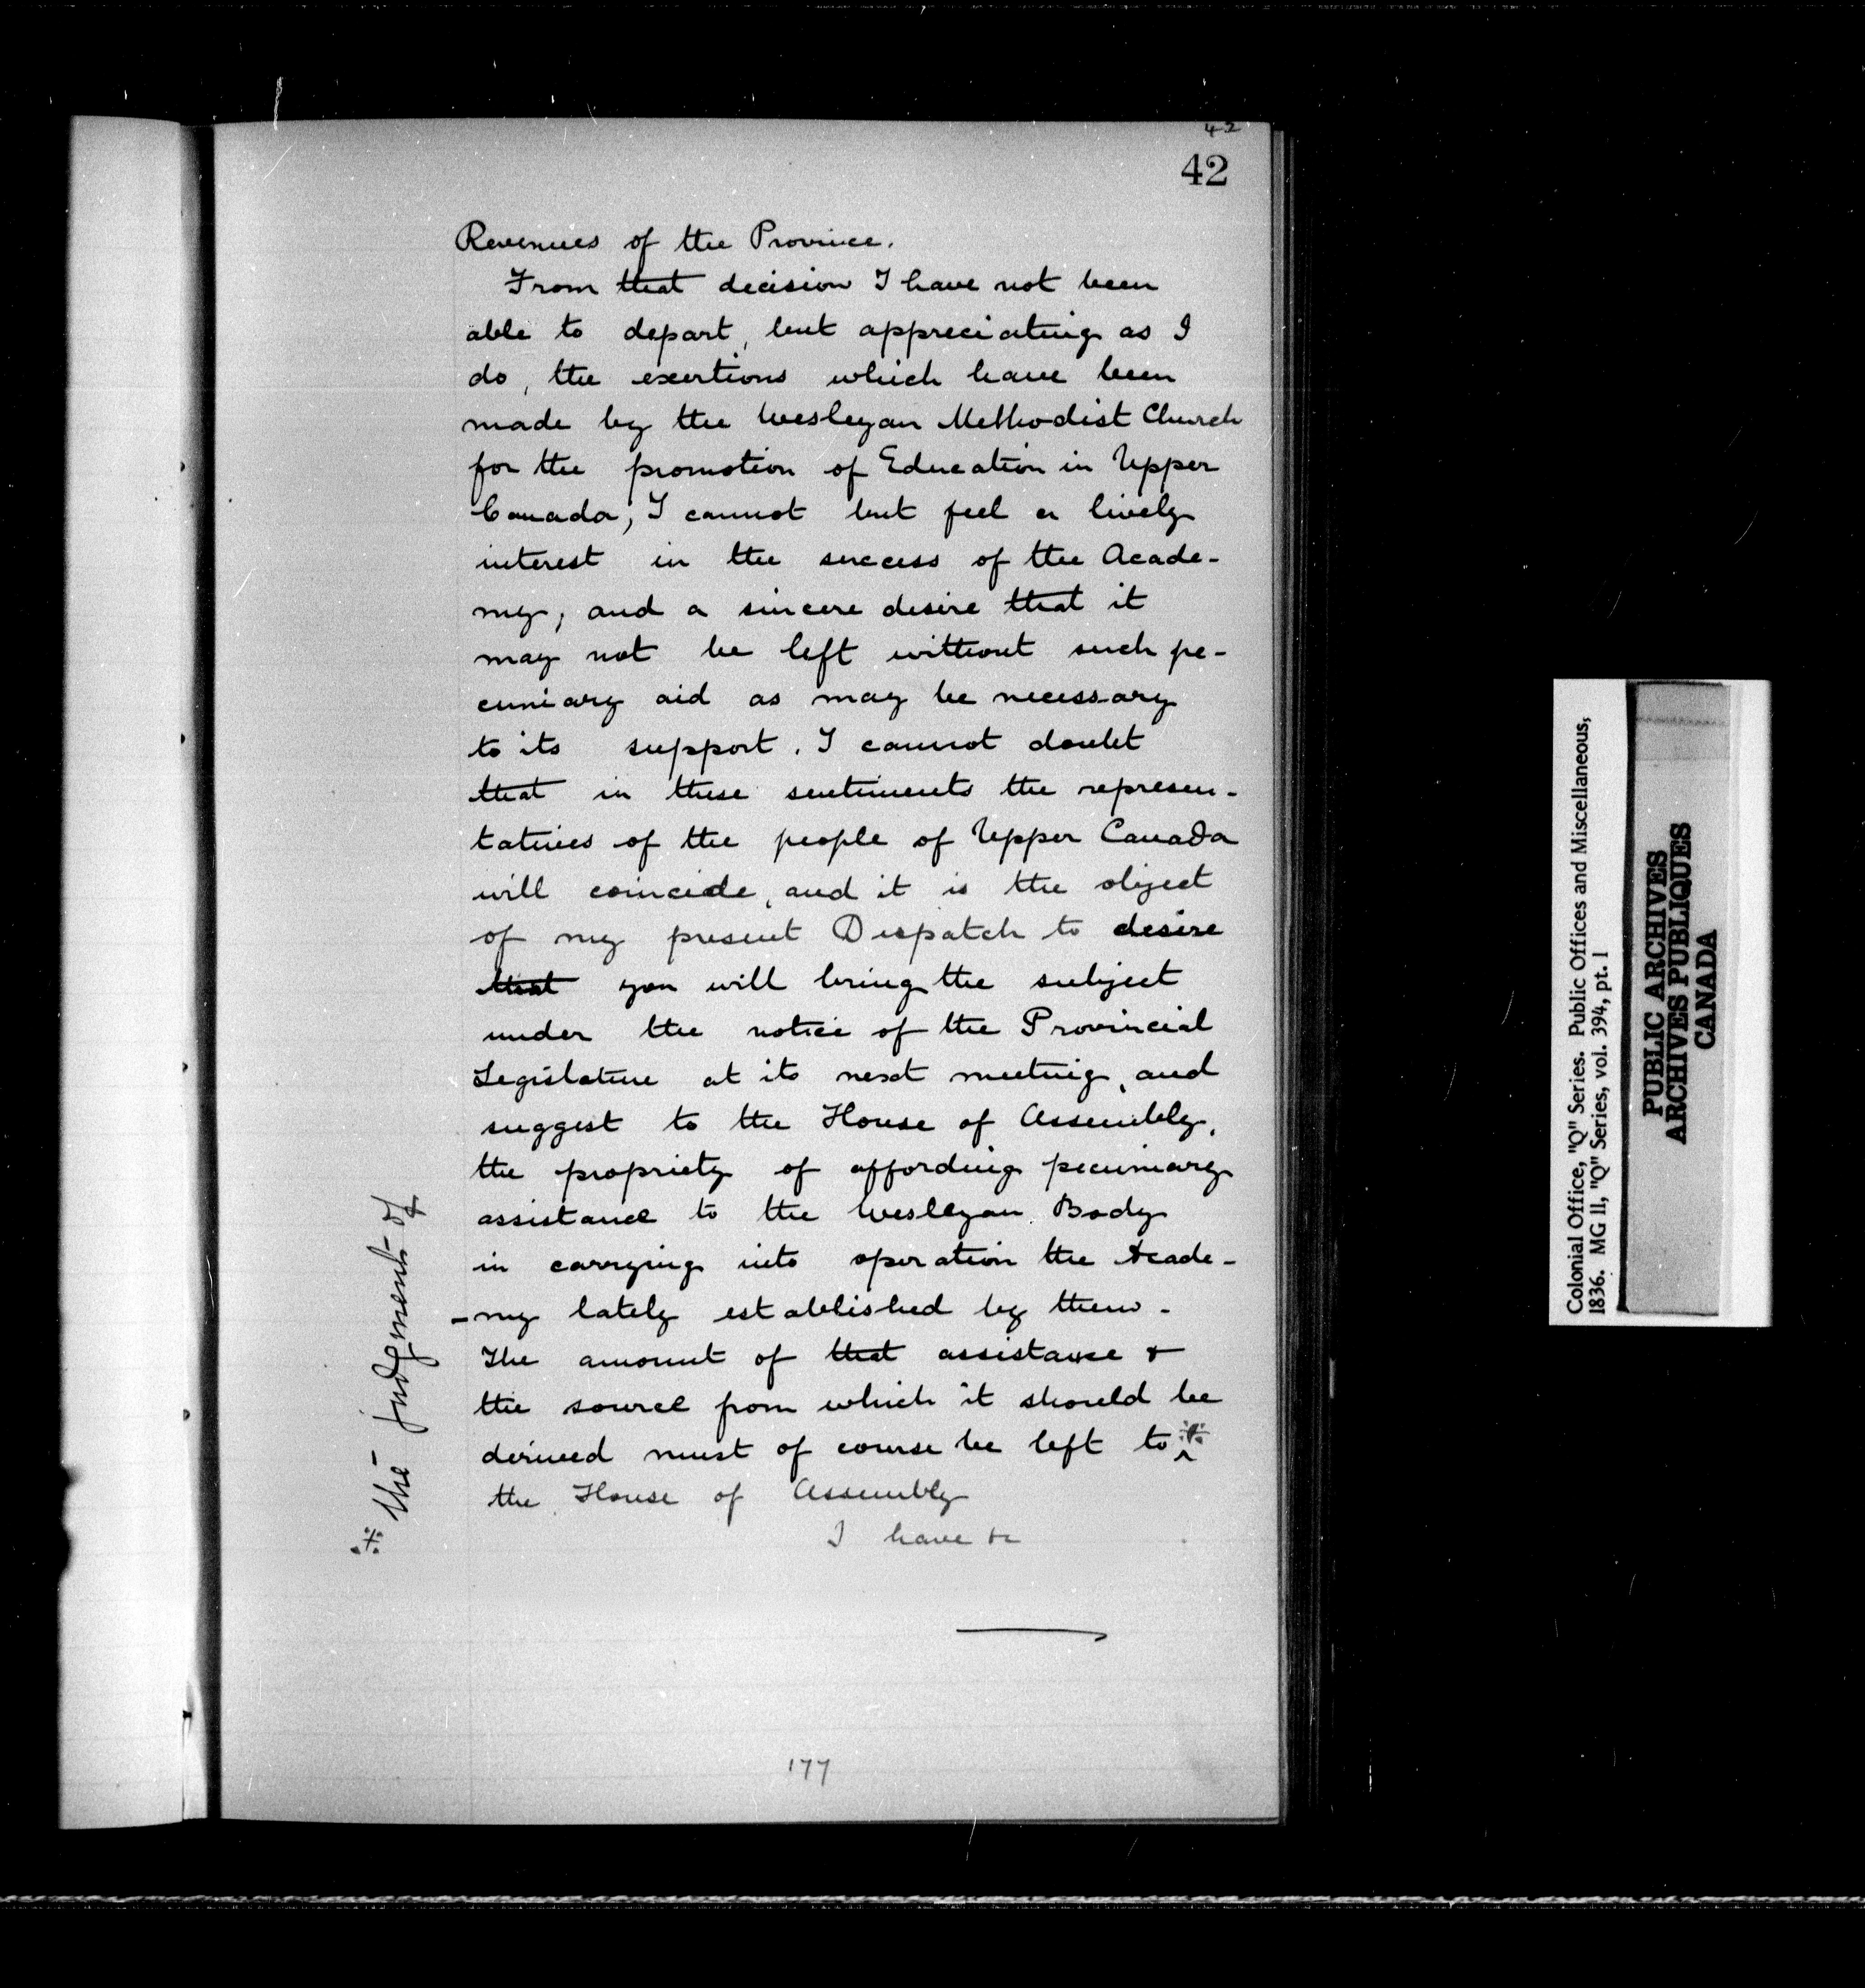 42
42
Revenues of the Province.
From that decision I have not been
able to depart, but appreciating as I
do, the exertions which have been
made by the Wesleyan Methodist Church
for the promotion of Education in Upper
Canada, I cannot but feel a lively
interest in the success of the Acade-
my, and a sincere desire that it
may not be left without such pe-
cuniary aid as may be necessary
to its support. I cannot doubt
that in these sentiments the represen-
tatives of the people of Upper Canada
will coincide, and it is the object
of my present Dispatch to desire
that you will bring the subject
under the notice of the Provincial
Legislature at its next meeting, and
suggest to the House of Assembly,
the propriety of affording pecuniary
assistance to the Wesleyan Body
in carrying into operation the Acade-
-my lately established by them.
The amount of that assistance &
the source from which it should be
derived must of course be left to ※
the House of Assembly
I have &c
※ the judgment of
177
Colonial Office, "Q" Series. Public Offices and Miscellaneous,
1836. MG 11, "Q" Series, vol. 394, pt. 1
PUBLIC ARCHIVES
ARCHIVES PUBLIQUES
CANADA